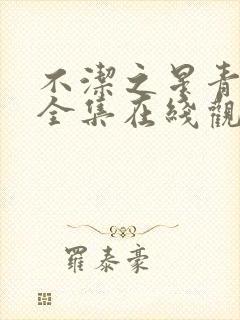 不潔之星青
全集在綫觀
羅泰豪